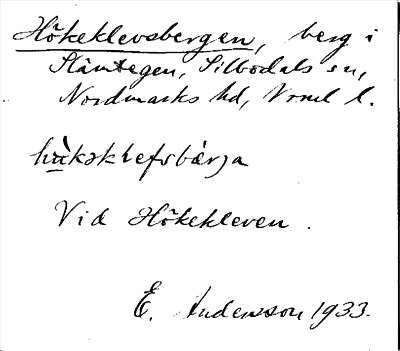 Hökeklevsbergen, berg i
Slämtegen, Silbodals sn,
Nordmarks hd, Vrml l.
Vid Hökekleven.
E. Andersson 1933.